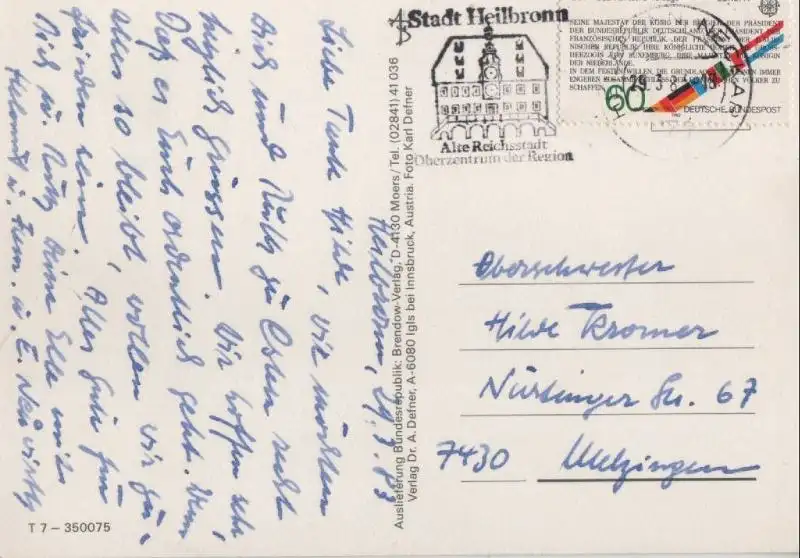 Heilbronn, 29.3.83
Liebe Tante Hilde, wir möchten
Dich und Ruth zu Ostern recht
herzlich grüssen. Wir hoffen sehr
Daß es Euch ordentlich geht. Wenn
alles so bleibt, wollen wir zu-
frieden sein. Alles Gute für
Dich für Ruth, Deine Elle mit
Helmut u. Fam. u. E.
T 7 – 350075
Auslieferung Bundesrepublik: Brendow-Verlag, D-4130 Moers/Tel. (02841) 41 036
Verlag Dr. A. Defner, A-6080 Igls bei Innsbruck, Austria. Foto: Karl Defner
Stadt Heilbronn
Alte Reichsstadt
Oberzentrum der Region
SEINE MAJESTÄT DER KÖNIG DER BELGIER, DER PRÄSIDENT
DER BUNDESREPUBLIK DEUTSCHLAND, DER PRÄSIDENT DER
FRANZÖSISCHEN REPUBLIK, DER PRÄSIDENT DER ITALIE-
NISCHEN REPUBLIK, IHRE KÖNIGLICHE HOHEIT DIE GROSS-
HERZOGIN VON LUXEMBURG, IHRE MAJESTÄT DIE KÖNIGIN
DER NIEDERLANDE,
IN DEM FESTEN WILLEN, DIE GRUNDLAGEN IMMER
ENGEREN ZUSAMMENSCHLUSS VÖLKER ZU
SCHAFFEN
60
DEUTSCHE BUNDESPOST
Oberschwester
Hilde Kromer
Nürtinger Str. 67
7430 Metzingen